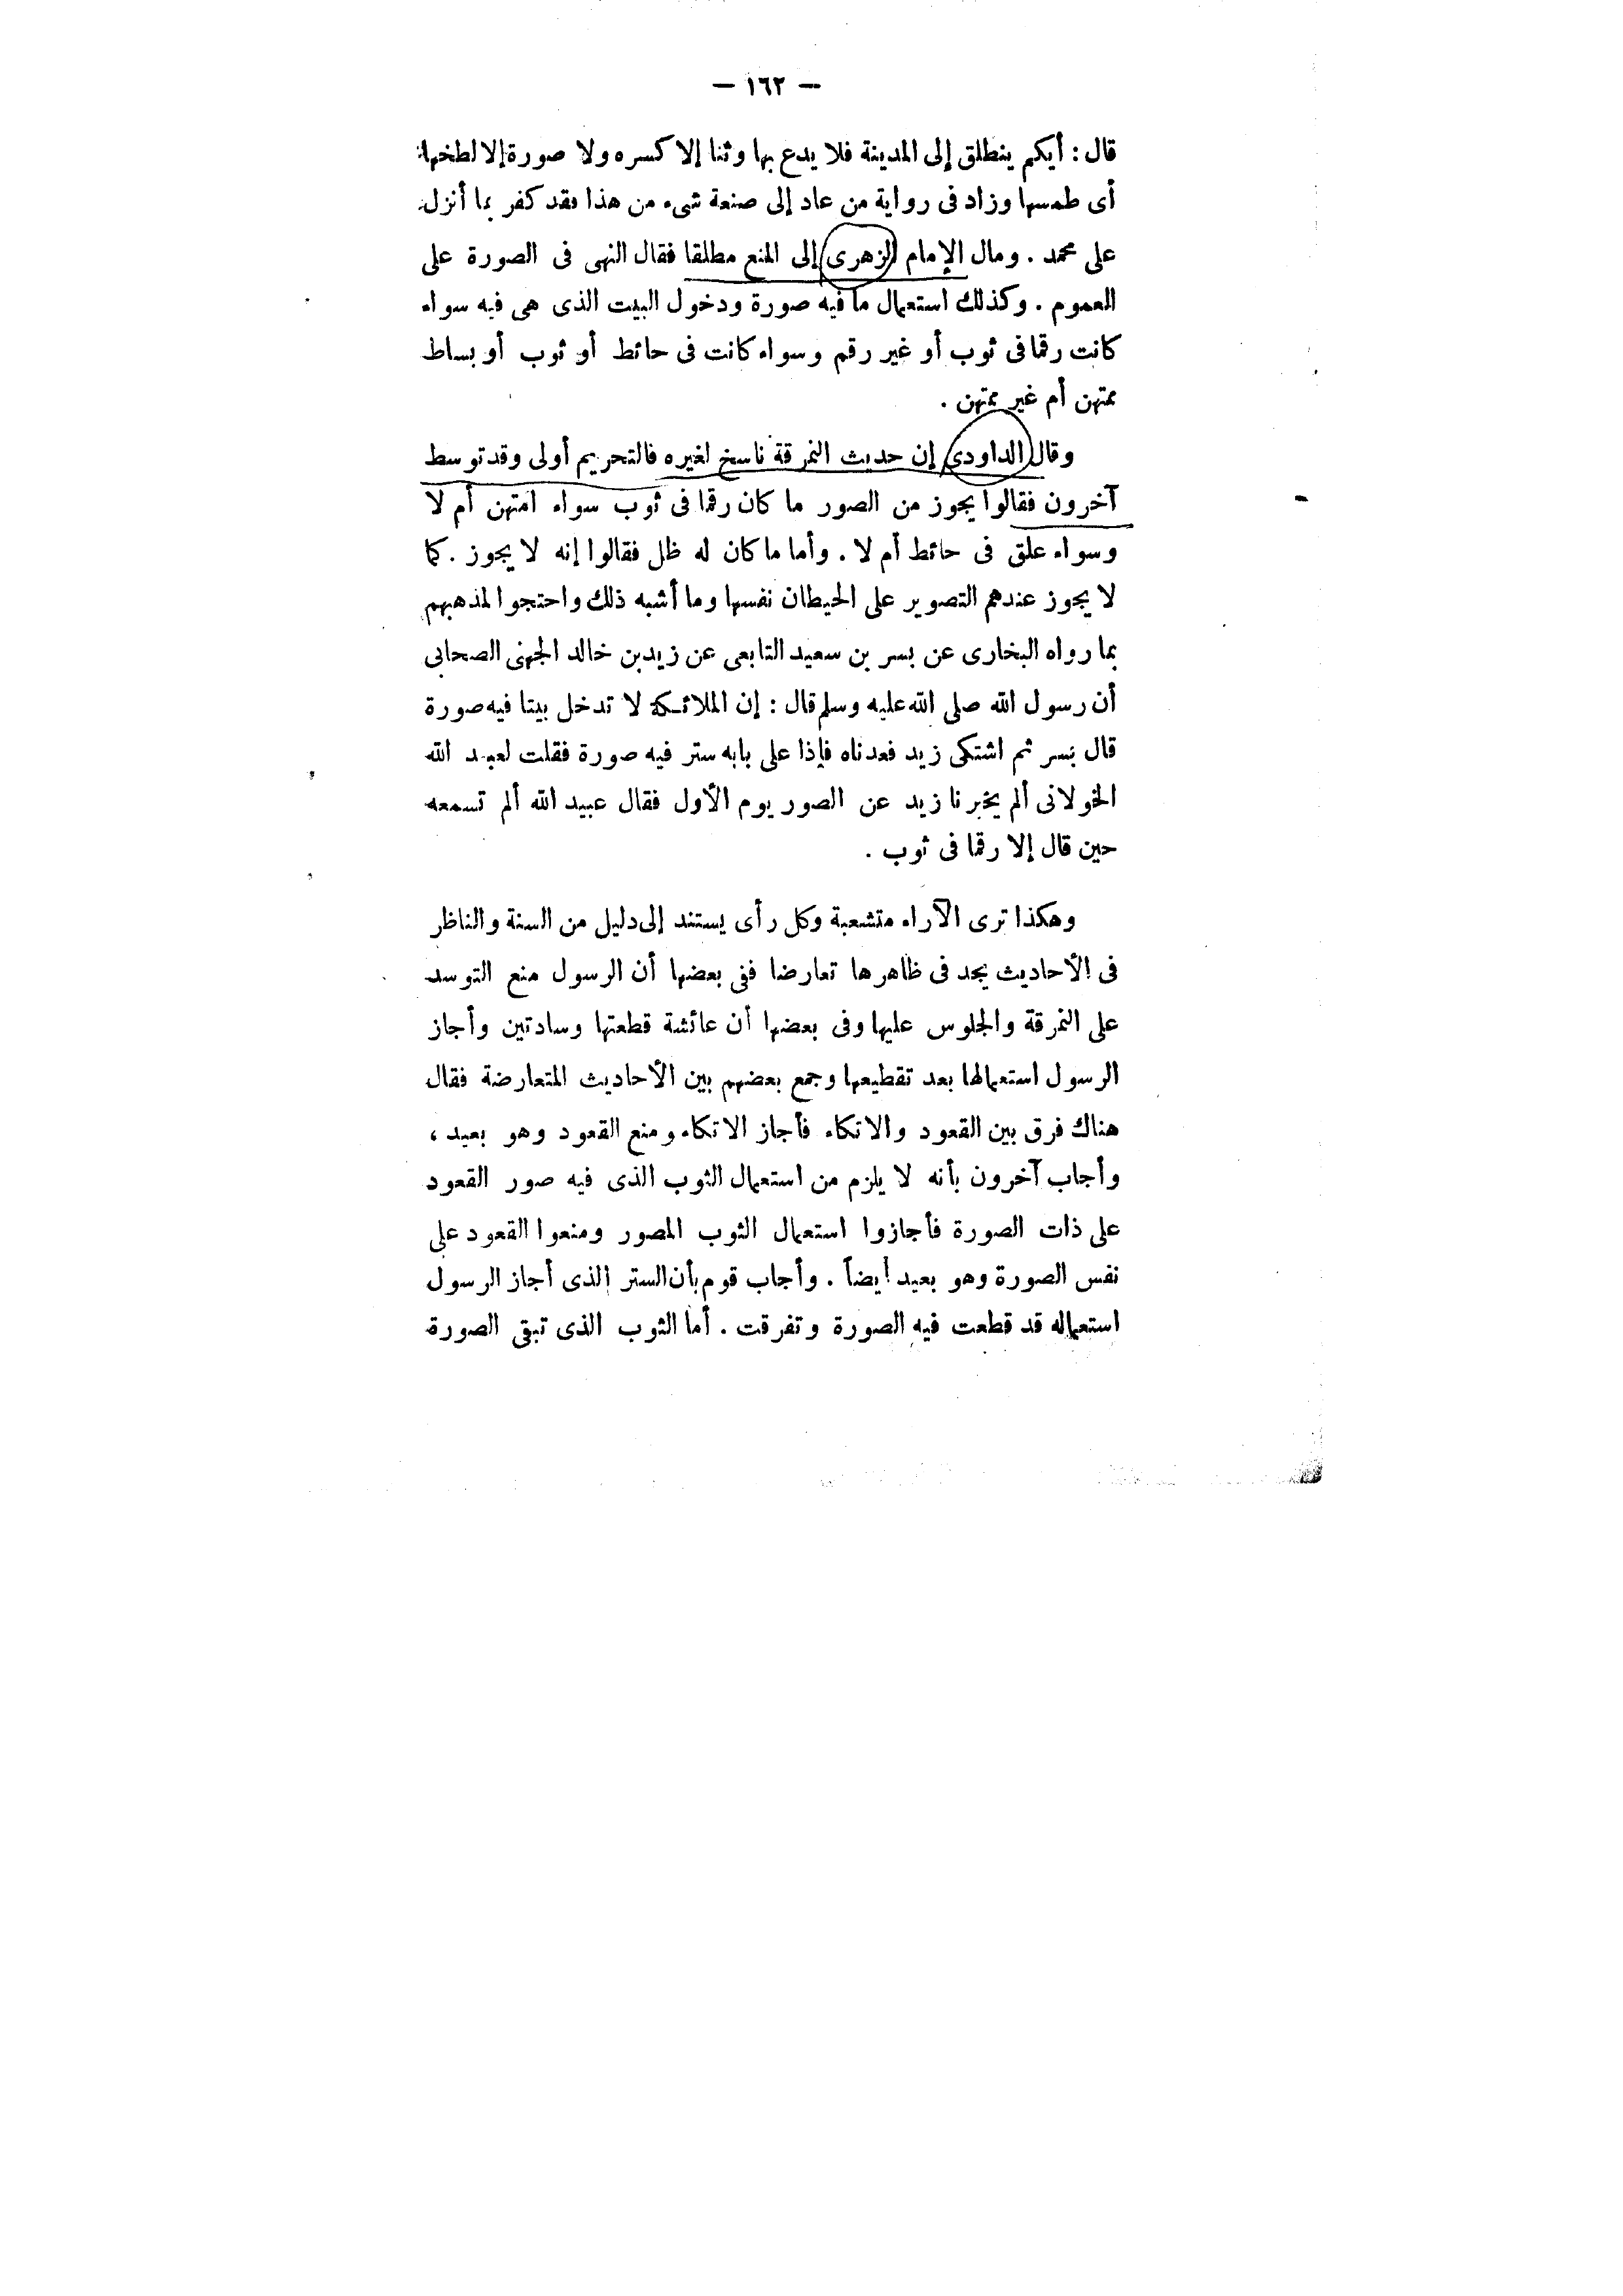 — ١٦٢ —
قال : أيكم ينطلق إلى المدينة فلا يدع بها وثنا إلا كسره ولا صورة إلا لطخها
أى طمسها وزاد فى رواية من عاد إلى صنعة شىء من هذا فقد كفر بما أنزل
على محمد . ومال الإمام الزهرى إلى المنع مطلقا فقال النهى فى الصورة على
العموم . وكذلك استعمال ما فيه صورة ودخول البيت الذى هى فيه سواء
كانت رقما فى ثوب أو غير رقم وسواء كانت فى حائط أو ثوب أو بساط
ممتهن أم غير ممتهن .
وقال الداودى إن حديث النمرقة ناسخ لغيره فالتحريم أولى وقد توسط
آخرون فقالوا يجوز من الصور ما كان رقما فى ثوب سواء امتهن أم لا
وسواء علق فى حائط أم لا . وأما ما كان له ظل فقالوا إنه لا يجوز . كما
لا يجوز عندهم التصوير على الحيطان نفسها وما أشبه ذلك واحتجوا لمذهبهم
بما رواه البخارى عن بسر بن سعيد التابعى عن زيد بن خالد الجهنى الصحابى
أن رسول الله صلى الله عليه وسلم قال : إن الملائكة لا تدخل بيتا فيه صورة
قال بسر ثم اشتكى زيد فعدناه فإذا على بابه ستر فيه صورة فقلت لعبيد الله
الخولانى ألم يخبرنا زيد عن الصور يوم الأول فقال عبيد الله ألم تسمعه
حين قال إلا رقما فى ثوب .
وهكذا ترى الآراء متشعبة وكل رأى يستند إلى دليل من السنة والناظر
فى الأحاديث يجد فى ظاهرها تعارضا ففى بعضها أن الرسول منع التوسد
على النمرقة والجلوس عليها وفى بعضها أن عائشة قطعتها وسادتين وأجاز
الرسول استعمالها بعد تقطيعها وجمع بعضهم بين الأحاديث المتعارضة فقال
هناك فرق بين القعود والاتكاء فأجاز الاتكاء ومنع القعود وهو بعيد ،
وأجاب آخرون بأنه لا يلزم من استعمال الثوب الذى فيه صور القعود
على ذات الصورة فأجازوا استعمال الثوب المصور ومنعوا القعود على
نفس الصورة وهو بعيد أيضاً . وأجاب قوم بأن الستر الذى أجاز الرسول
استعماله قد قطعت فيه الصورة وتفرقت . أما الثوب الذى تبقى الصورة